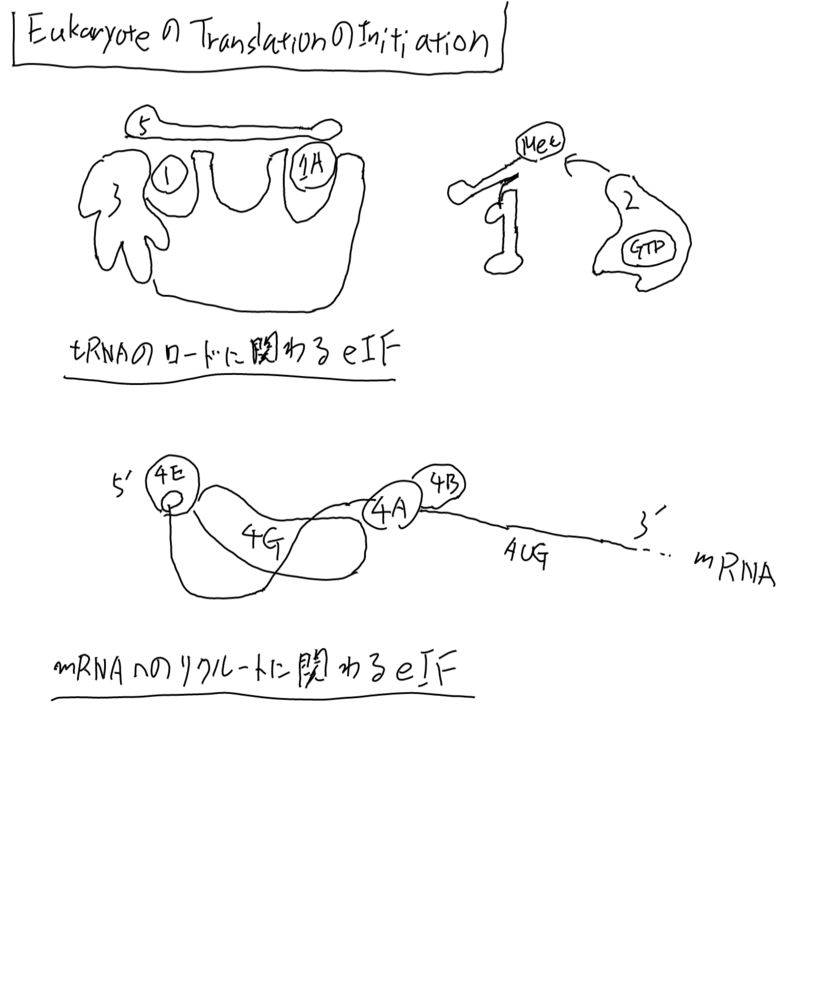 EukaryoteのTranslationのInitiation
5
3
1
1A
Met
2
GTP
tRNAのロードに関わるeIF
5'
4E
4G
4A
4B
AUG
3'
mRNA
mRNAへのリクルートに関わるeIF